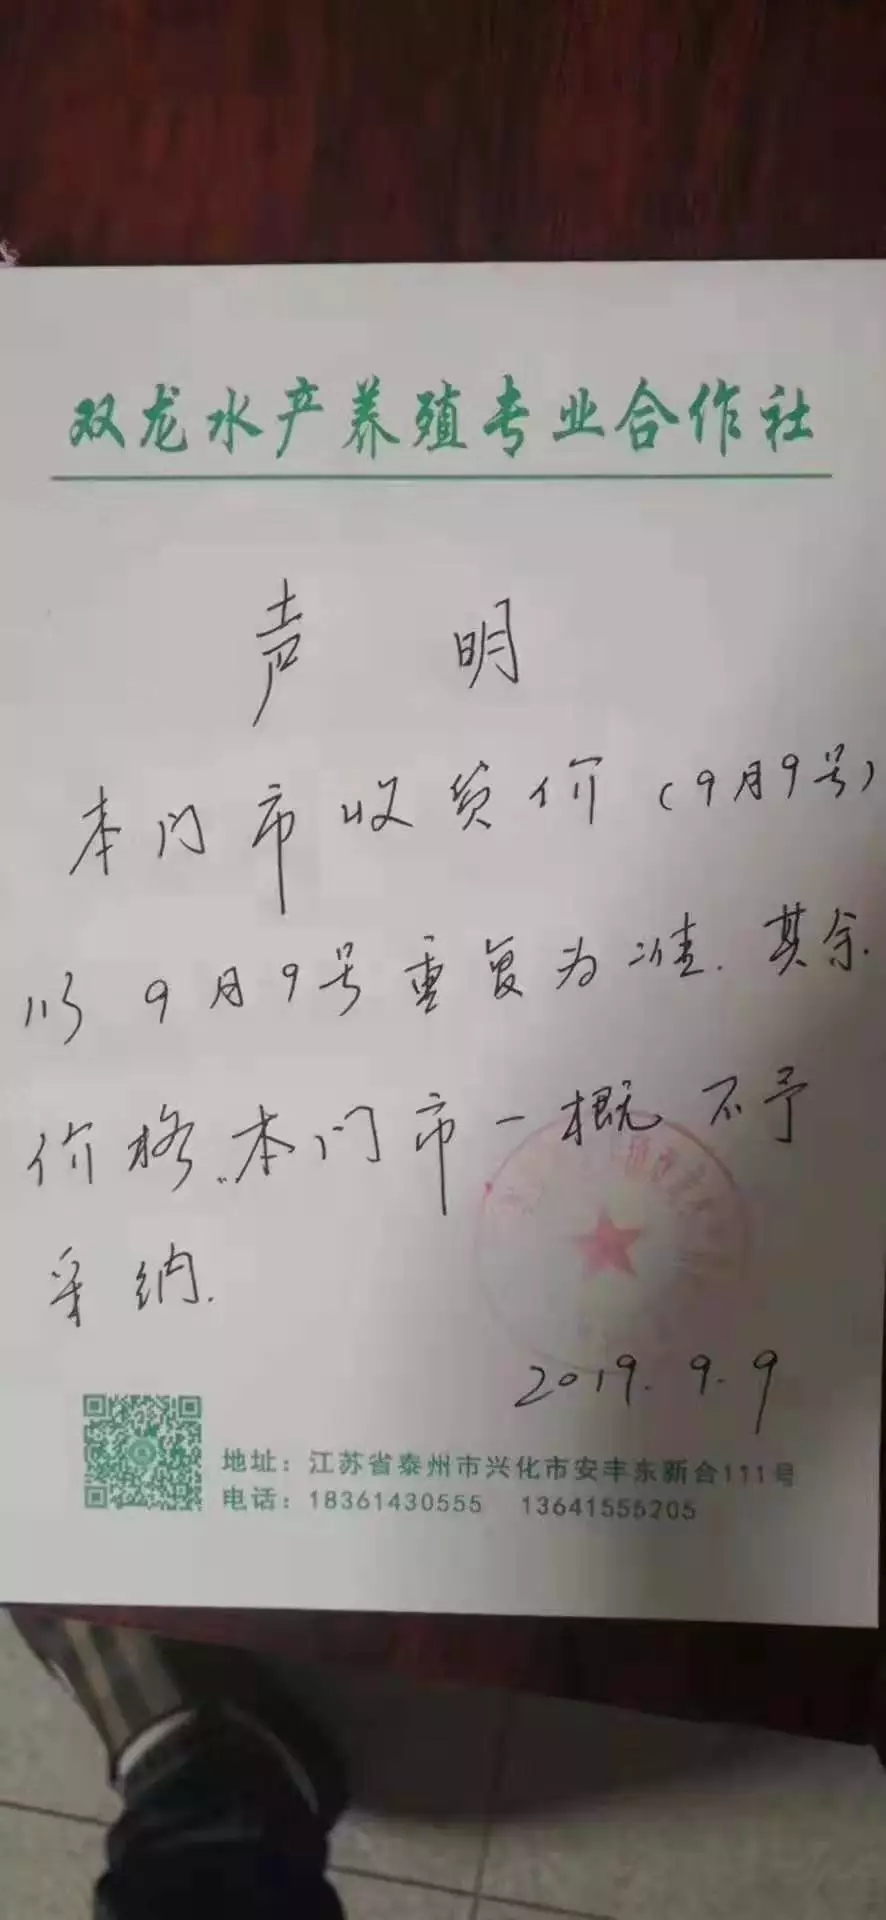 双龙水产养殖专业合作社
声 明
本门市收货价(9月9号)
以9月9号重复为准.其余
价格.本门市一概不予
采纳.
2019.9.9
地址：江苏省泰州市兴化市安丰东新合111号
电话：18361430555 13641556205